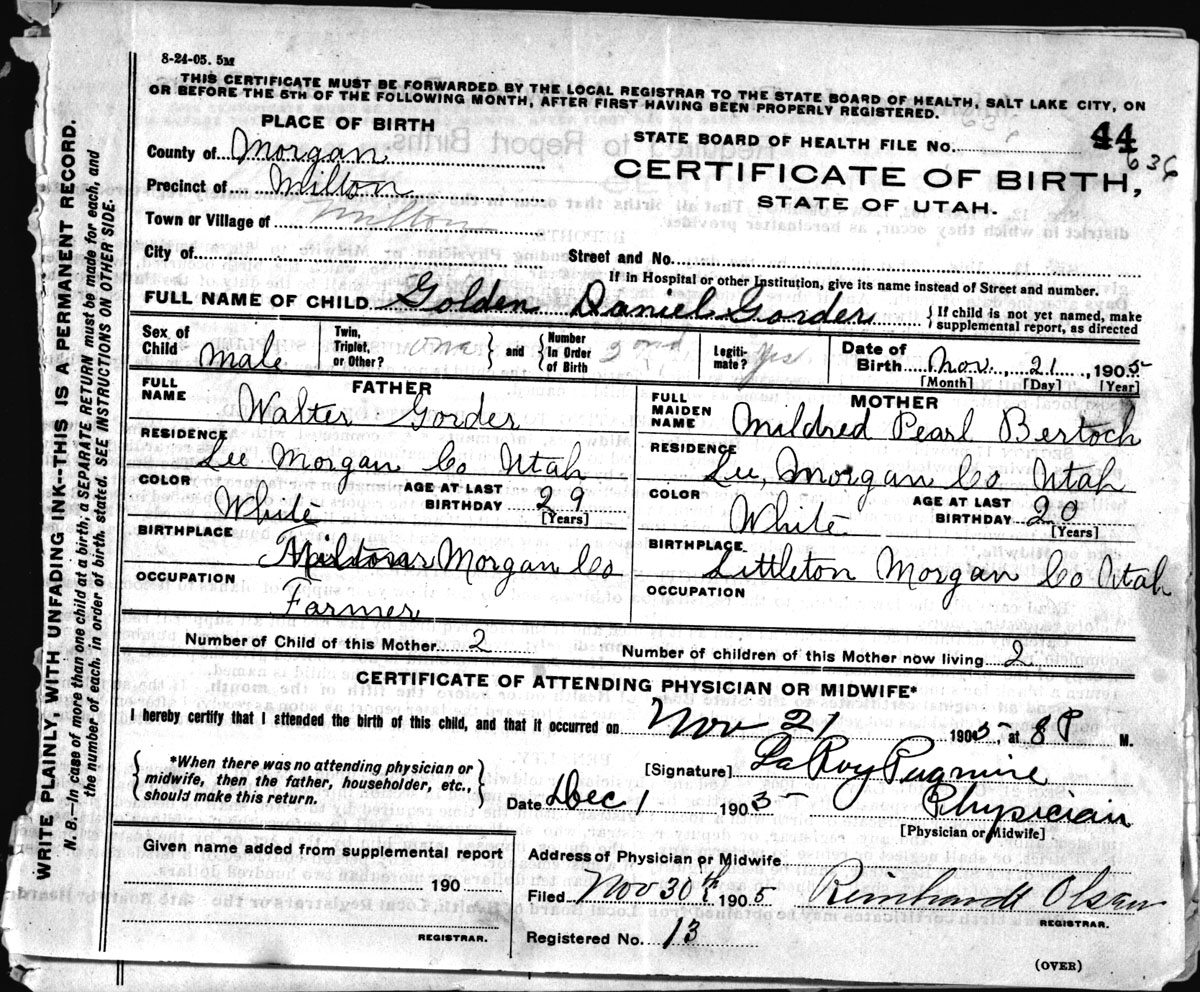 8-24-05. 5M
THIS CERTIFICATE MUST BE FORWARDED BY THE LOCAL REGISTRAR TO THE STATE BOARD OF HEALTH, SALT LAKE CITY, ON
OR BEFORE THE 5TH OF THE FOLLOWING MONTH, AFTER FIRST HAVING BEEN PROPERLY REGISTERED.
PLACE OF BIRTH
STATE BOARD OF HEALTH FILE No. 44
636
County of Morgan
CERTIFICATE OF BIRTH,
Precinct of Milton
STATE OF UTAH.
Town or Village of Milton
City of
Street and No.
If in Hospital or other Institution, give its name instead of Street and number.
FULL NAME OF CHILD Golden Daniel Gorder
{ If child is not yet named, make
supplemental report, as directed
Sex of Child male
Twin, Triplet, or Other? one } and { Number In Order of Birth 2nd
Legitimate? Yes
Date of Birth Nov. 21, 1905
[Month] [Day] [Year]
FATHER
FULL NAME Walter Gorder
RESIDENCE Lee Morgan Co Utah
COLOR White
AGE AT LAST BIRTHDAY 29
[Years]
BIRTHPLACE Milton Morgan Co
OCCUPATION Farmer
MOTHER
FULL MAIDEN NAME Mildred Pearl Bertoch
RESIDENCE Lee, Morgan Co Utah
COLOR White
AGE AT LAST BIRTHDAY 20
[Years]
BIRTHPLACE Littleton Morgan Co Utah
OCCUPATION
Number of Child of this Mother 2
Number of children of this Mother now living 2
CERTIFICATE OF ATTENDING PHYSICIAN OR MIDWIFE*
I hereby certify that I attended the birth of this child, and that it occurred on Nov 21 1905, at 8 P M.
{ *When there was no attending physician or
midwife, then the father, householder, etc.,
should make this return. }
[Signature] LaRoy Pugmire
Date Dec 1 1905 Physician
[Physician or Midwife]
Given name added from supplemental report
190
REGISTRAR.
Address of Physician or Midwife
Filed Nov 30th 1905 Reinhardt Olsen
REGISTRAR.
Registered No. 13
(OVER)
WRITE PLAINLY, WITH UNFADING INK--THIS IS A PERMANENT RECORD.
N. B.--In case of more than one child at a birth, a SEPARATE RETURN must be made for each, and
the number of each, in order of birth, stated. SEE INSTRUCTIONS ON OTHER SIDE.